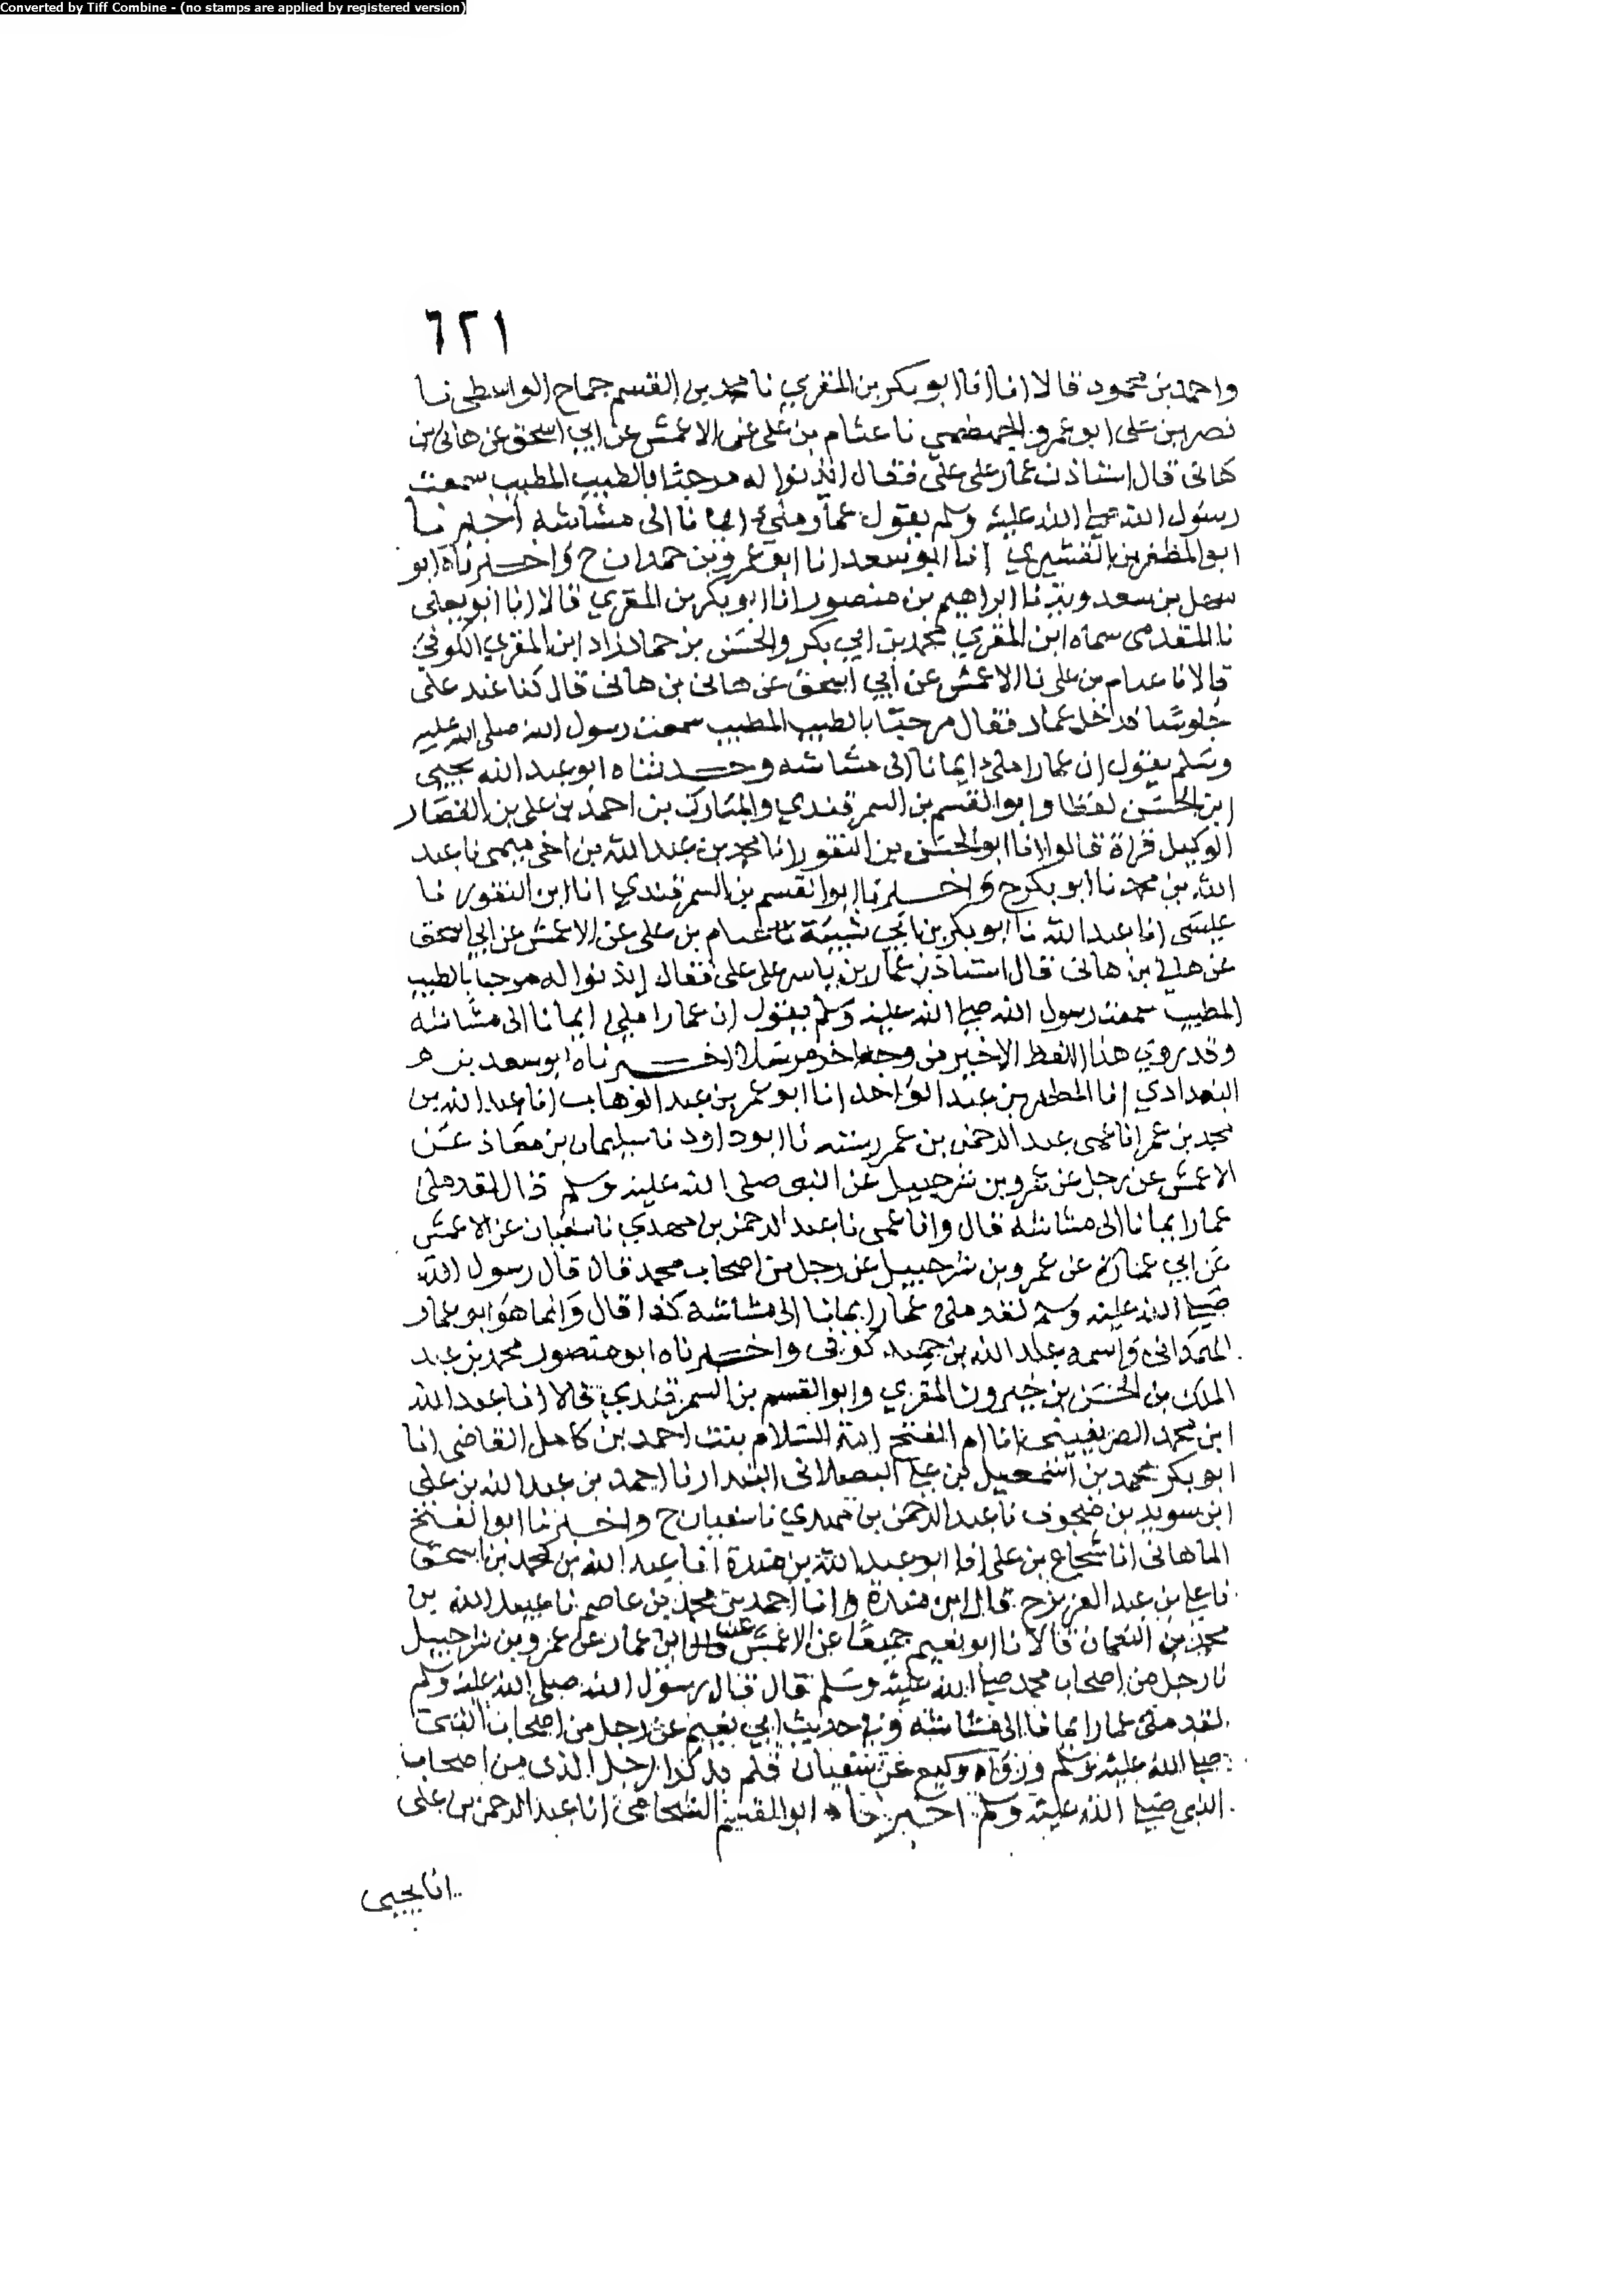 Converted by Tiff Combine - (no stamps are applied by registered version)
٦٢١
واحمد بن محمود قالا انا ابو بكر بن المقري نا محمد بن القسم جماح الواسطي نا
نصر بن علي ابو عمرو الجهضمي نا عثام بن علي عن الاعمش عن ابي اسحق عن هانى بن
هانى قال استاذن عمار على علي فقال ايذنوا له مرحبا بالطيب المطيب سمعت
رسول الله صلى الله عليه وسلم يقول عمار ملئ ايمانا الى مشاشه اخبرنا
ابو المظفر بن القشيري انا ابو سعد انا ابو عمرو بن حمدان ح واخبرناه ابو
سهل بن سعدويه نا ابراهيم بن منصور انا ابو بكر بن المقري قالا انا ابو يعلى
نا المقدمى سماه ابن المقري محمد بن ابي بكر والحسن بن حماد زاد ابن المقري الكوفي
قالا نا عثام بن علي نا الاعمش عن ابي اسحق عن هانى بن هانى قال كنا عند علي
جلوسا فدخل عمار فقال مرحبا بالطيب المطيب سمعت رسول الله صلى الله عليه
وسلم يقول ان عمارا ملئ ايمانا الى مشاشه وحدثناه ابو عبد الله يحيى
ابن الحسن لفظا وابو القسم بن السمرقندي والمبارك بن احمد بن علي بن القصار
الوكيل قراة قالوا انا ابو الحسن بن النقور انا محمد بن عبد الله بن اخى ميمى نا عبد
الله بن محمد نا ابو بكر ح واخبرنا ابو القسم بن السمرقندي انا ابن النقور نا
عيسى انا عبد الله نا ابو بكر بن ابي شيبة نا عثام بن علي عن الاعمش عن ابي اسحق
عن هانى بن هانى قال استاذن عمار بن ياسر على علي فقال ايذنوا له مرحبا بالطيب
المطيب سمعت رسول الله صلى الله عليه وسلم يقول ان عمارا ملئ ايمانا الى مشاشه
وقد روي هذا اللفظ الاخير من وجه اخر مرسلا اخبرناه ابو سعد بن
البغدادي انا المطهر بن عبد الواحد انا ابو عمر بن عبد الوهاب انا عبد الله بن
محمد بن عمر انا عمى عبد الرحمن بن عمر رسته نا ابو داود نا سليمان بن معاذ عن
الاعمش عن رجل عن عمرو بن شرحبيل عن النبي صلى الله عليه وسلم قال لقد ملئ
عمار ايمانا الى مشاشه قال وانا عمى نا عبد الرحمن بن مهدي نا سفيان عن الاعمش
عن ابي عمار عن عمرو بن شرحبيل عن رجل من اصحاب محمد قال قال رسول الله
صلى الله عليه وسلم لقد ملئ عمار ايمانا الى مشاشه كذا قال وانما هو ابو عمار
الهمدانى واسمه عبد الله بن حميد كوفى واخبرناه ابو منصور محمد بن عبد
الملك بن الحسن بن خيرون المقري وابو القسم بن السمرقندي قالا انا عبد الله
ابن محمد الصريفينى انا ام الفتح امة السلام بنت احمد بن كامل القاضى انا
ابو بكر محمد بن اسمعيل بن علي البصلانى البندار نا احمد بن عبد الله بن علي
ابن سويد بن منجوف نا عبد الرحمن بن مهدي نا سفيان ح واخبرنا ابو الفتح
الماهانى انا شجاع بن علي انا ابو عبد الله بن مندة انا عبد الله بن محمد بن اسحق
نا علي بن عبد العزيز ح قال ابن مندة وانا احمد بن محمد بن عاصم نا عبيد الله بن
محمد بن النعمان قالا نا ابو نعيم جميعا عن الاعمش عن ابي عمار عن عمرو بن شراحبيل
نا رجل من اصحاب محمد صلى الله عليه وسلم قال قال رسول الله صلى الله عليه وسلم
لقد ملئ عمار ايمانا الى مشاشه وفي حديث ابي نعيم عن رجل من اصحاب النبي
صلى الله عليه وسلم ورواه وكيع عن سفيان فلم يذكر الرجل الذى من اصحاب
النبي صلى الله عليه وسلم اخبرناه ابو القسم الشحامى انا عبد الرحمن بن علي
انا يحيى